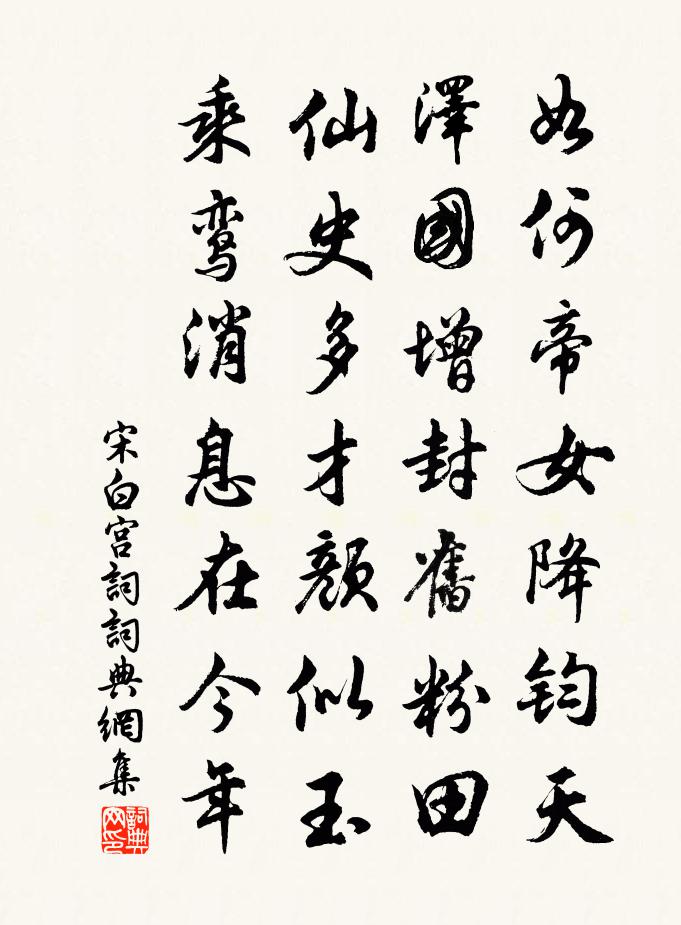 如何帝女降鈞天
澤國增封舊粉田
仙史多才顔似玉
乘鸾消息在今年
宋白宫詞詞典網集
詞典网印